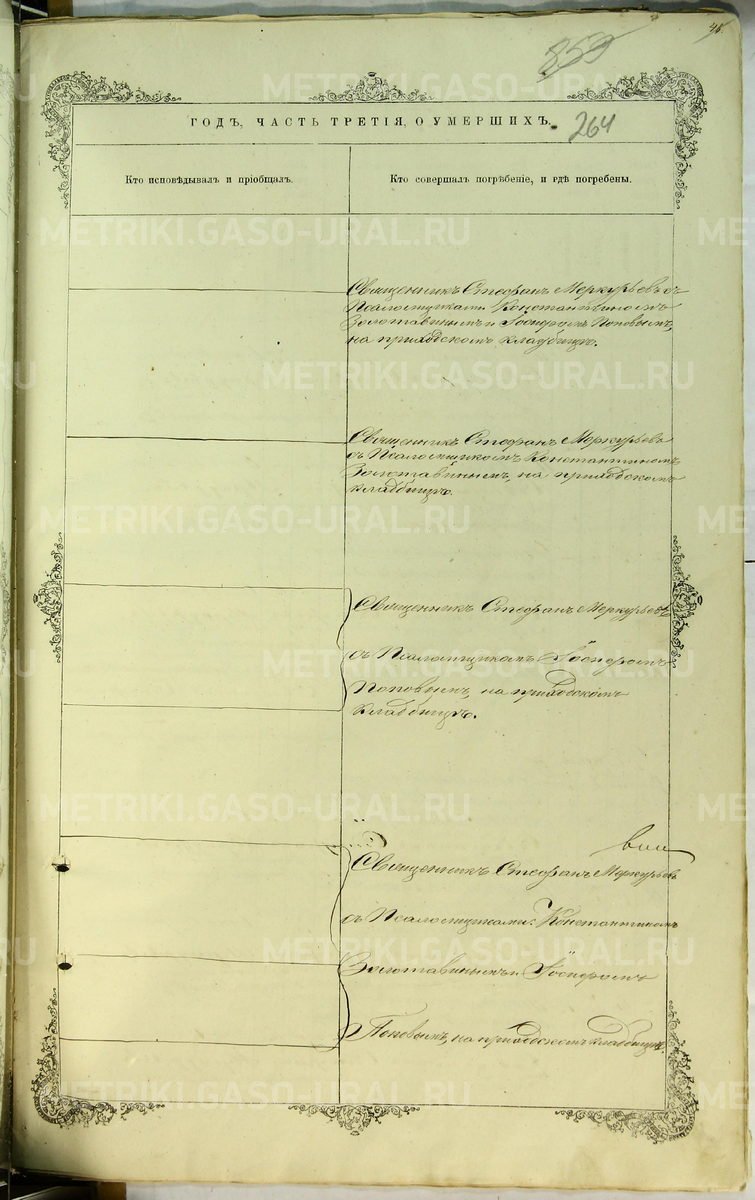 45.
859
ГОДЪ, ЧАСТЬ ТРЕТІЯ, О УМЕРШИХЪ. 264
Кто исповѣдывалъ и пріобщалъ.
Кто совершалъ погрѣбеніе, и гдѣ погребены.
Священникъ Стефанъ Меркурьевъ съ
Псаломщиками Константиномъ
Золотавинымъ и Ѳеодоромъ Поповымъ,
на приходскомъ кладбищѣ.
Священникъ Стефанъ Меркурьевъ
съ Псаломщикомъ Константиномъ
Золотавинымъ, на приходскомъ
кладбищѣ.
Священникъ Стефанъ Меркурьевъ
съ Псаломщикомъ Ѳеодоромъ
Поповымъ, на приходскомъ
кладбищѣ.
Священникъ Стефанъ Меркурьевъ
съ Псаломщиками: Константиномъ
Золотавинымъ и Ѳеодоромъ
Поповымъ, на приходскомъ кладбищѣ.
METRIKI.GASO-URAL.RU